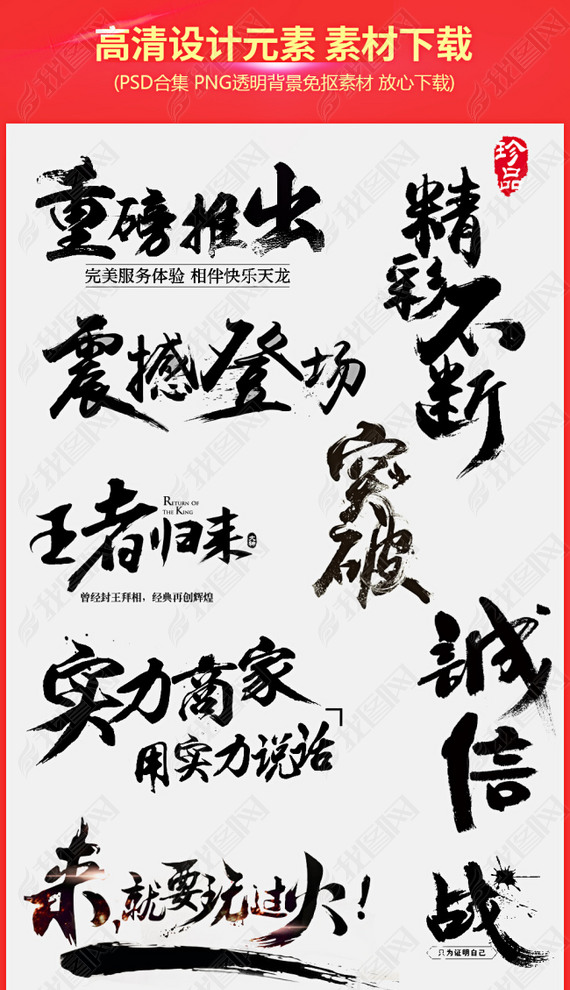 高清设计元素 素材下载
(PSD合集 PNG透明背景免抠素材 放心下载)
珍品
重磅推出
完美服务体验 相伴快乐天龙
精彩不断
震撼登场
突破
RETURN OF
THE KING
王者归来
曾经封王拜相，经典再创辉煌
誠信
实力商家
用实力说话
来,就要玩过火!
战
只为证明自己